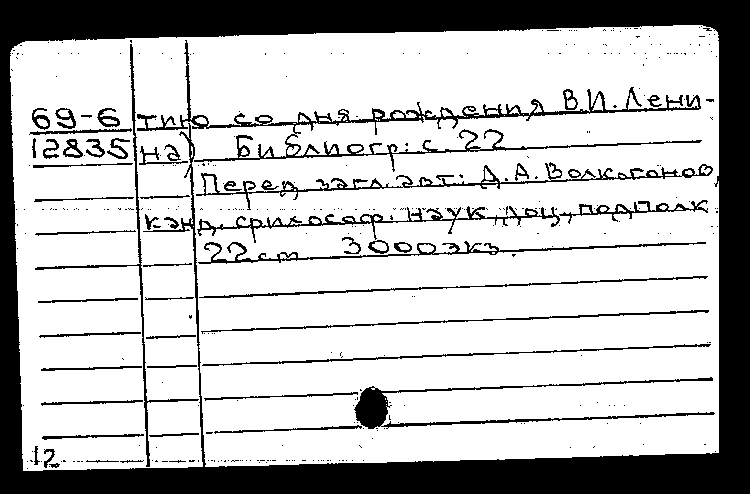 69-6 тию со дня рождения В.И. Лени-
12835 на) Библиогр: с. 22
Перед загл. авт: Д.А. Волкогонов,
канд. философ. наук, доц., подполк.
22 ст 3000 экз.
12